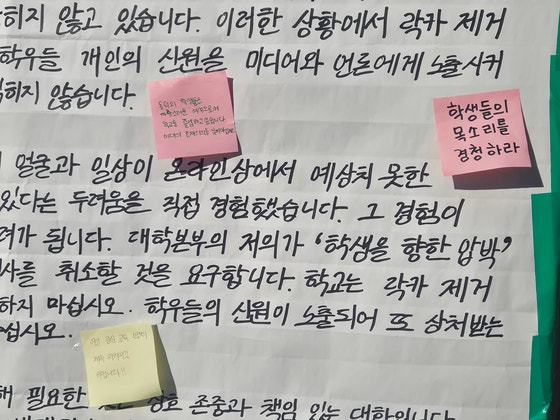 히지 않고 있습니다. 이러한 상황에서 락카 제거
학우들 개인의 신원을 미디어와 언론에게 노출시켜
히지 않습니다.
학생들의
목소리를
경청하라
얼굴과 일상이 온라인상에서 예상치 못한
있다는 두려움을 직접 경험했습니다. 그 경험이
려가 됩니다. 대학본부의 저의가 '학생을 향한 압박'
사를 취소할 것을 요구합니다. 학교는 락카 제거
하지 마십시오. 학우들의 신원이 노출되어 또 상처받는
십시오.
해 필요한 상호 존중과 책임 있는 대학입니다.